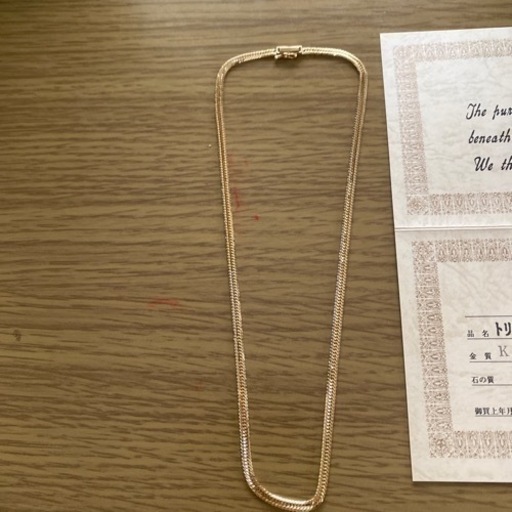 The pur
beneath
We th
品名 トリ
金質 K
石の質
御買上年月